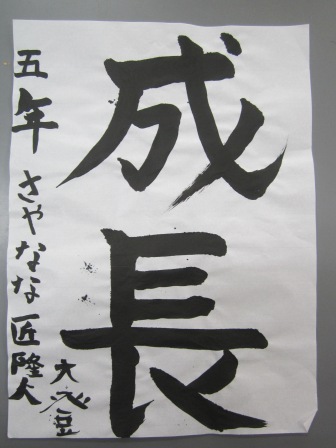 成長
五年 さやなな 匠隆人
大 豆